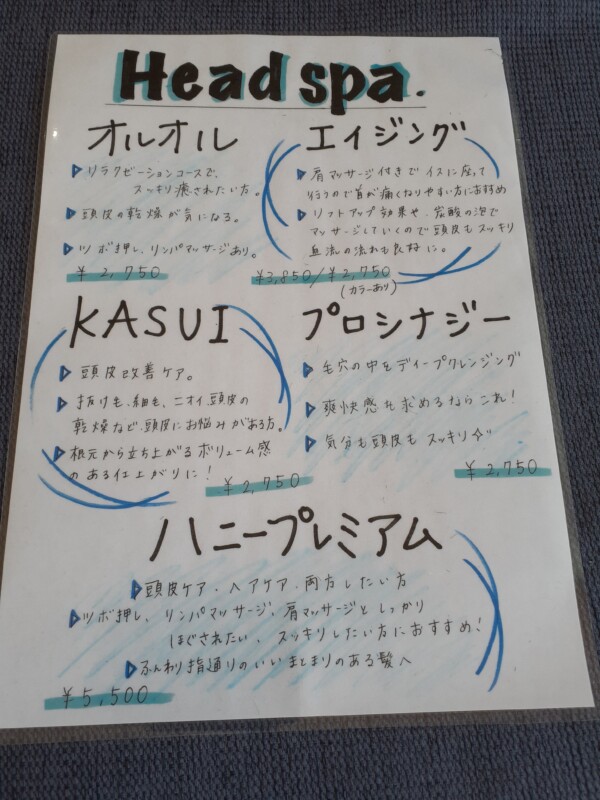 Head spa.
オルオル
▷ リラクゼーションコースで、
スッキリ癒されたい方。
▷ 頭皮の乾燥が気になる。
▷ ツボ押し、リンパマッサージあり。
¥2,750
エイジング
▷ 肩マッサージ付きでイスに座って
行うので首が痛くなりやすい方におすすめ
▷ リフトアップ効果や、炭酸の泡で
マッサージしていくので頭皮もスッキリ
血流の流れも良好に。
¥3,850/¥2,750
(カラーあり)
KASUI
▷ 頭皮改善ケア。
▷ 抜け毛、細毛、ニオイ、頭皮の
乾燥など、頭皮にお悩みがある方。
▷ 根元から立ち上がるボリューム感
のある仕上がりに!
¥2,750
プロシナジー
▷ 毛穴の中をディープクレンジング
▷ 爽快感を求めるならこれ!
▷ 気分も頭皮もスッキリ☆
¥2,750
ハニープレミアム
▷ 頭皮ケア・ヘアケア、両方したい方
▷ ツボ押し、リンパマッサージ、肩マッサージとしっかり
ほぐされたい、スッキリしたい方におすすめ!
▷ ふんわり指通りのいいまとまりのある髪へ
¥5,500